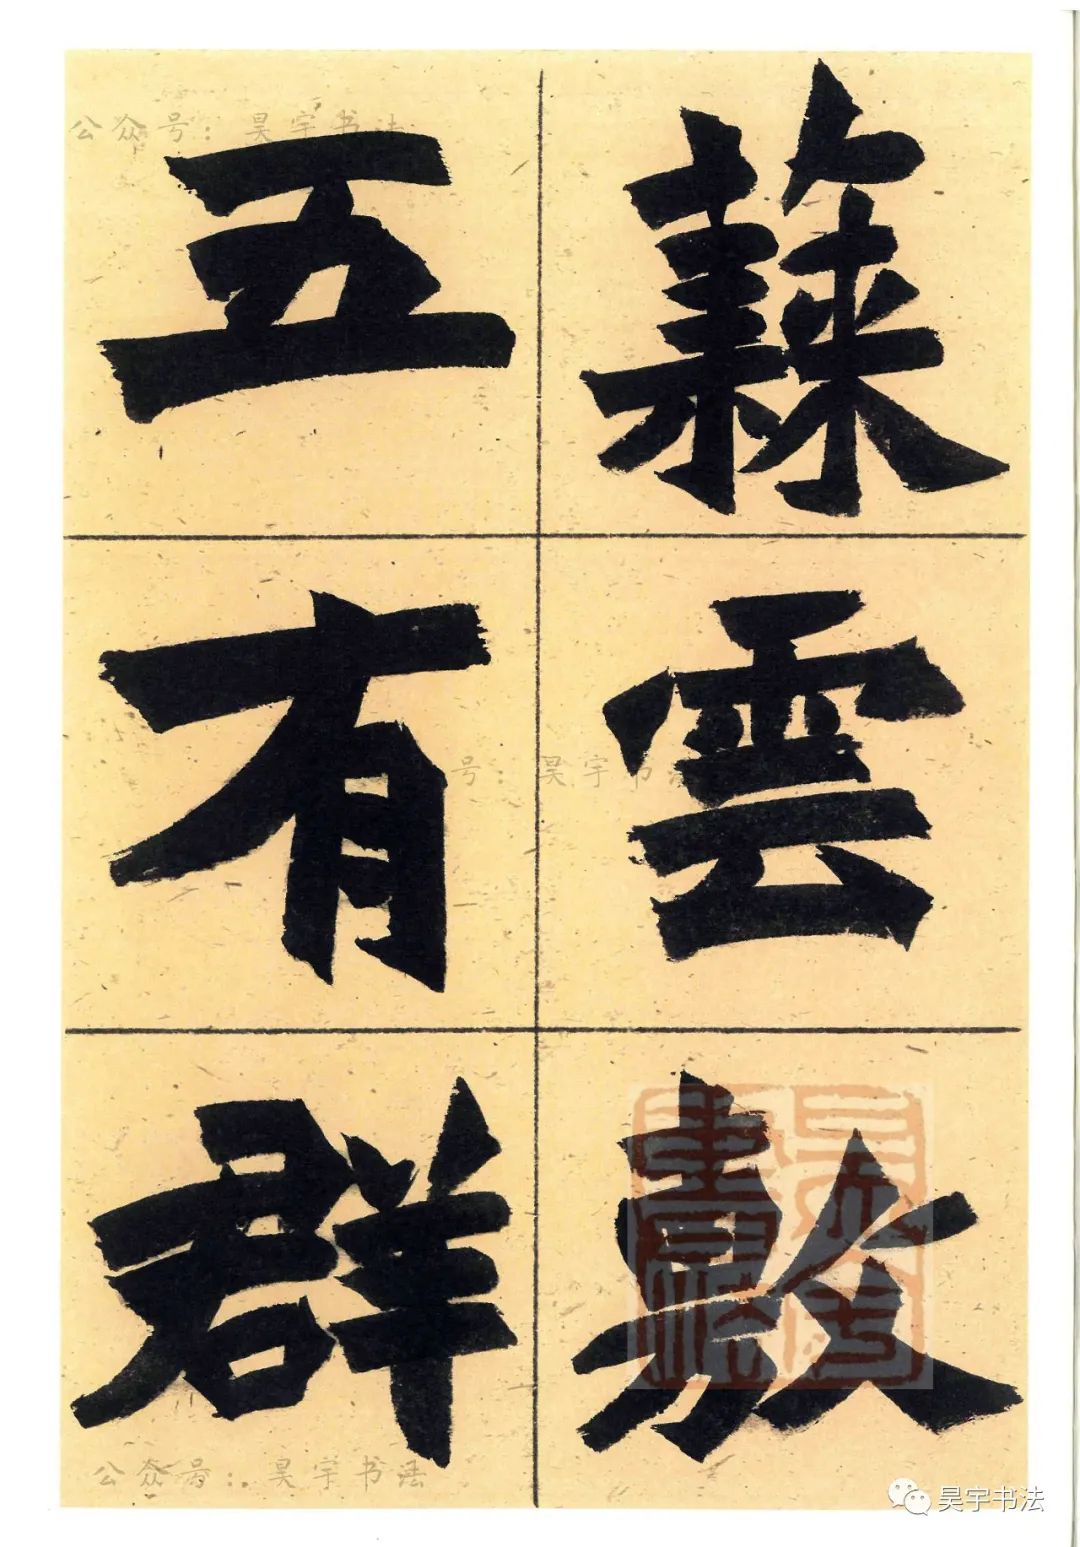 雲敷
五有群
公众号: 昊宇书法
号: 昊宇书法
公众号: 昊宇书法
昊宇书法